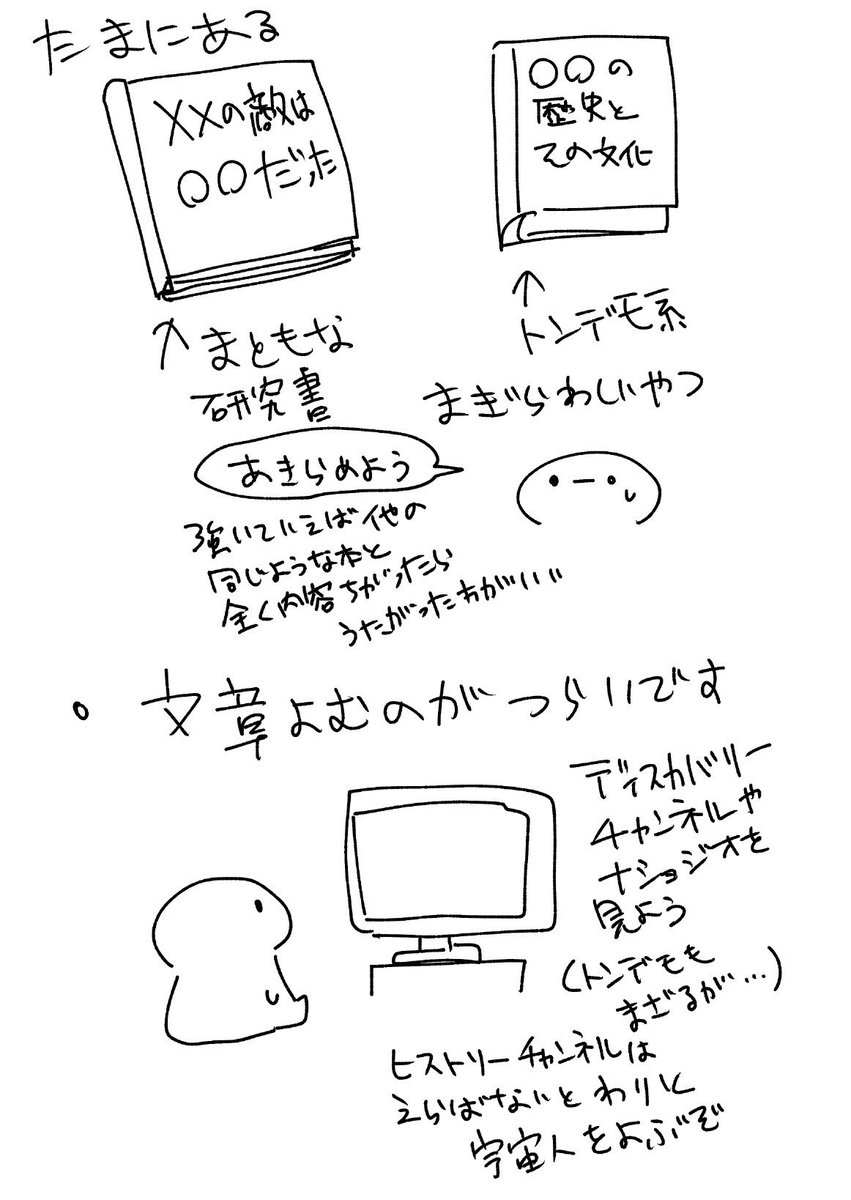 たまにある
××の敵は
〇〇だった
〇〇の
歴史と
その文化
↑まともな
研究書
↑
トンデモ系
まぎらわしいやつ
あきらめよう
強いていえば他の
同じような本と
全く内容ちがったら
うたがったわがいい
・文章よむのがつらいです
ディスカバリー
チャンネルや
ナショジオを
見よう
(トンデモも
まざるが…)
ヒストリーチャンネルは
えらばないとわりと
宇宙人をよぶぞ